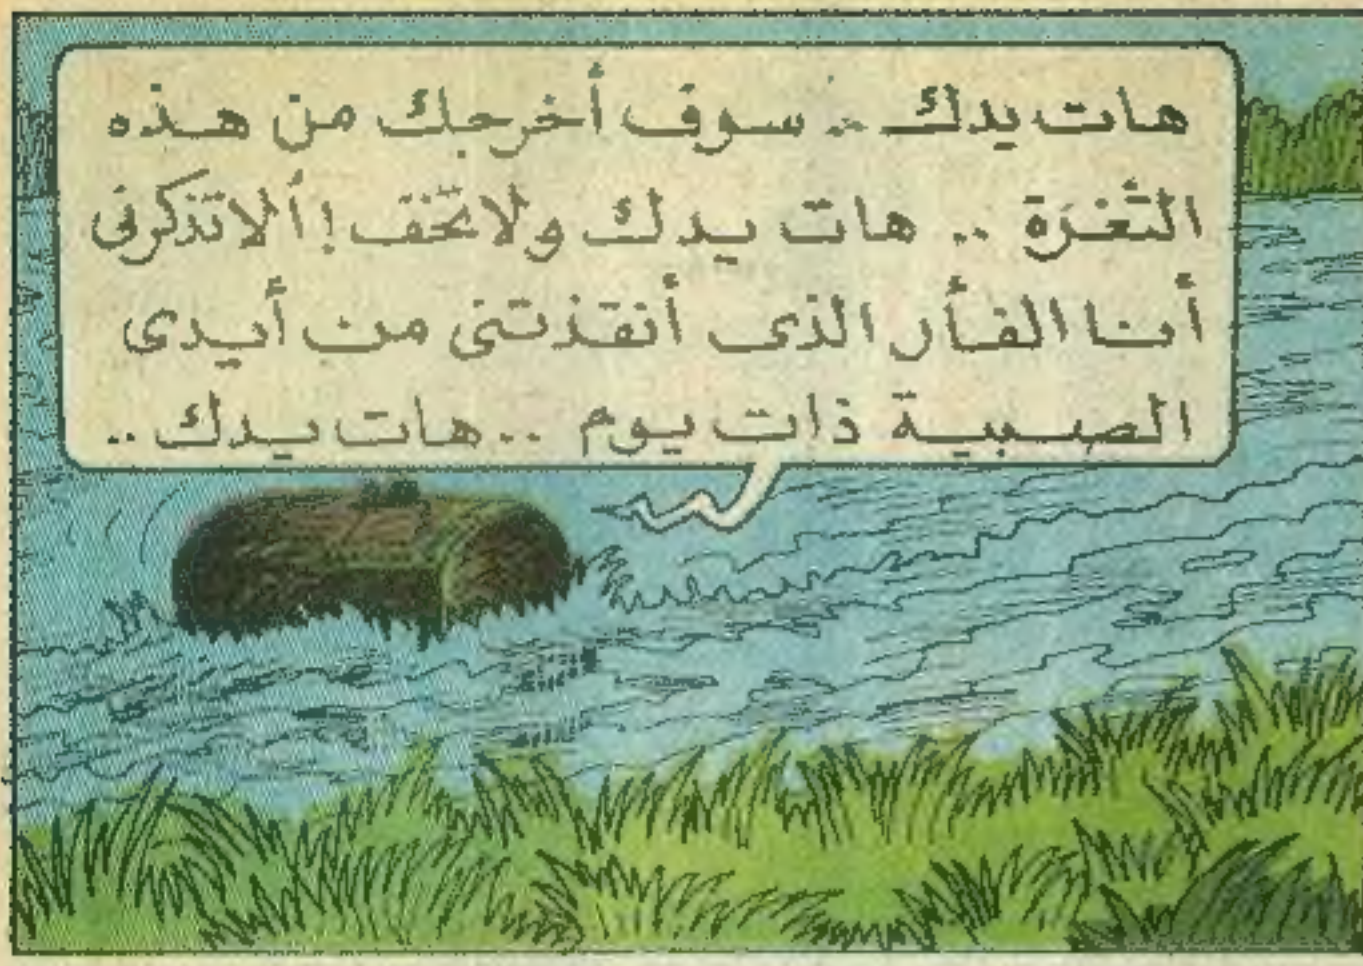 هات يدك .. سوف أخرجك من هذه
الثغرة .. هات يدك ولا تخف ! ألا تذكرنى
أنا الفأر الذى أنقذتنى من أيدى
الصبية ذات يوم .. هات يدك ..